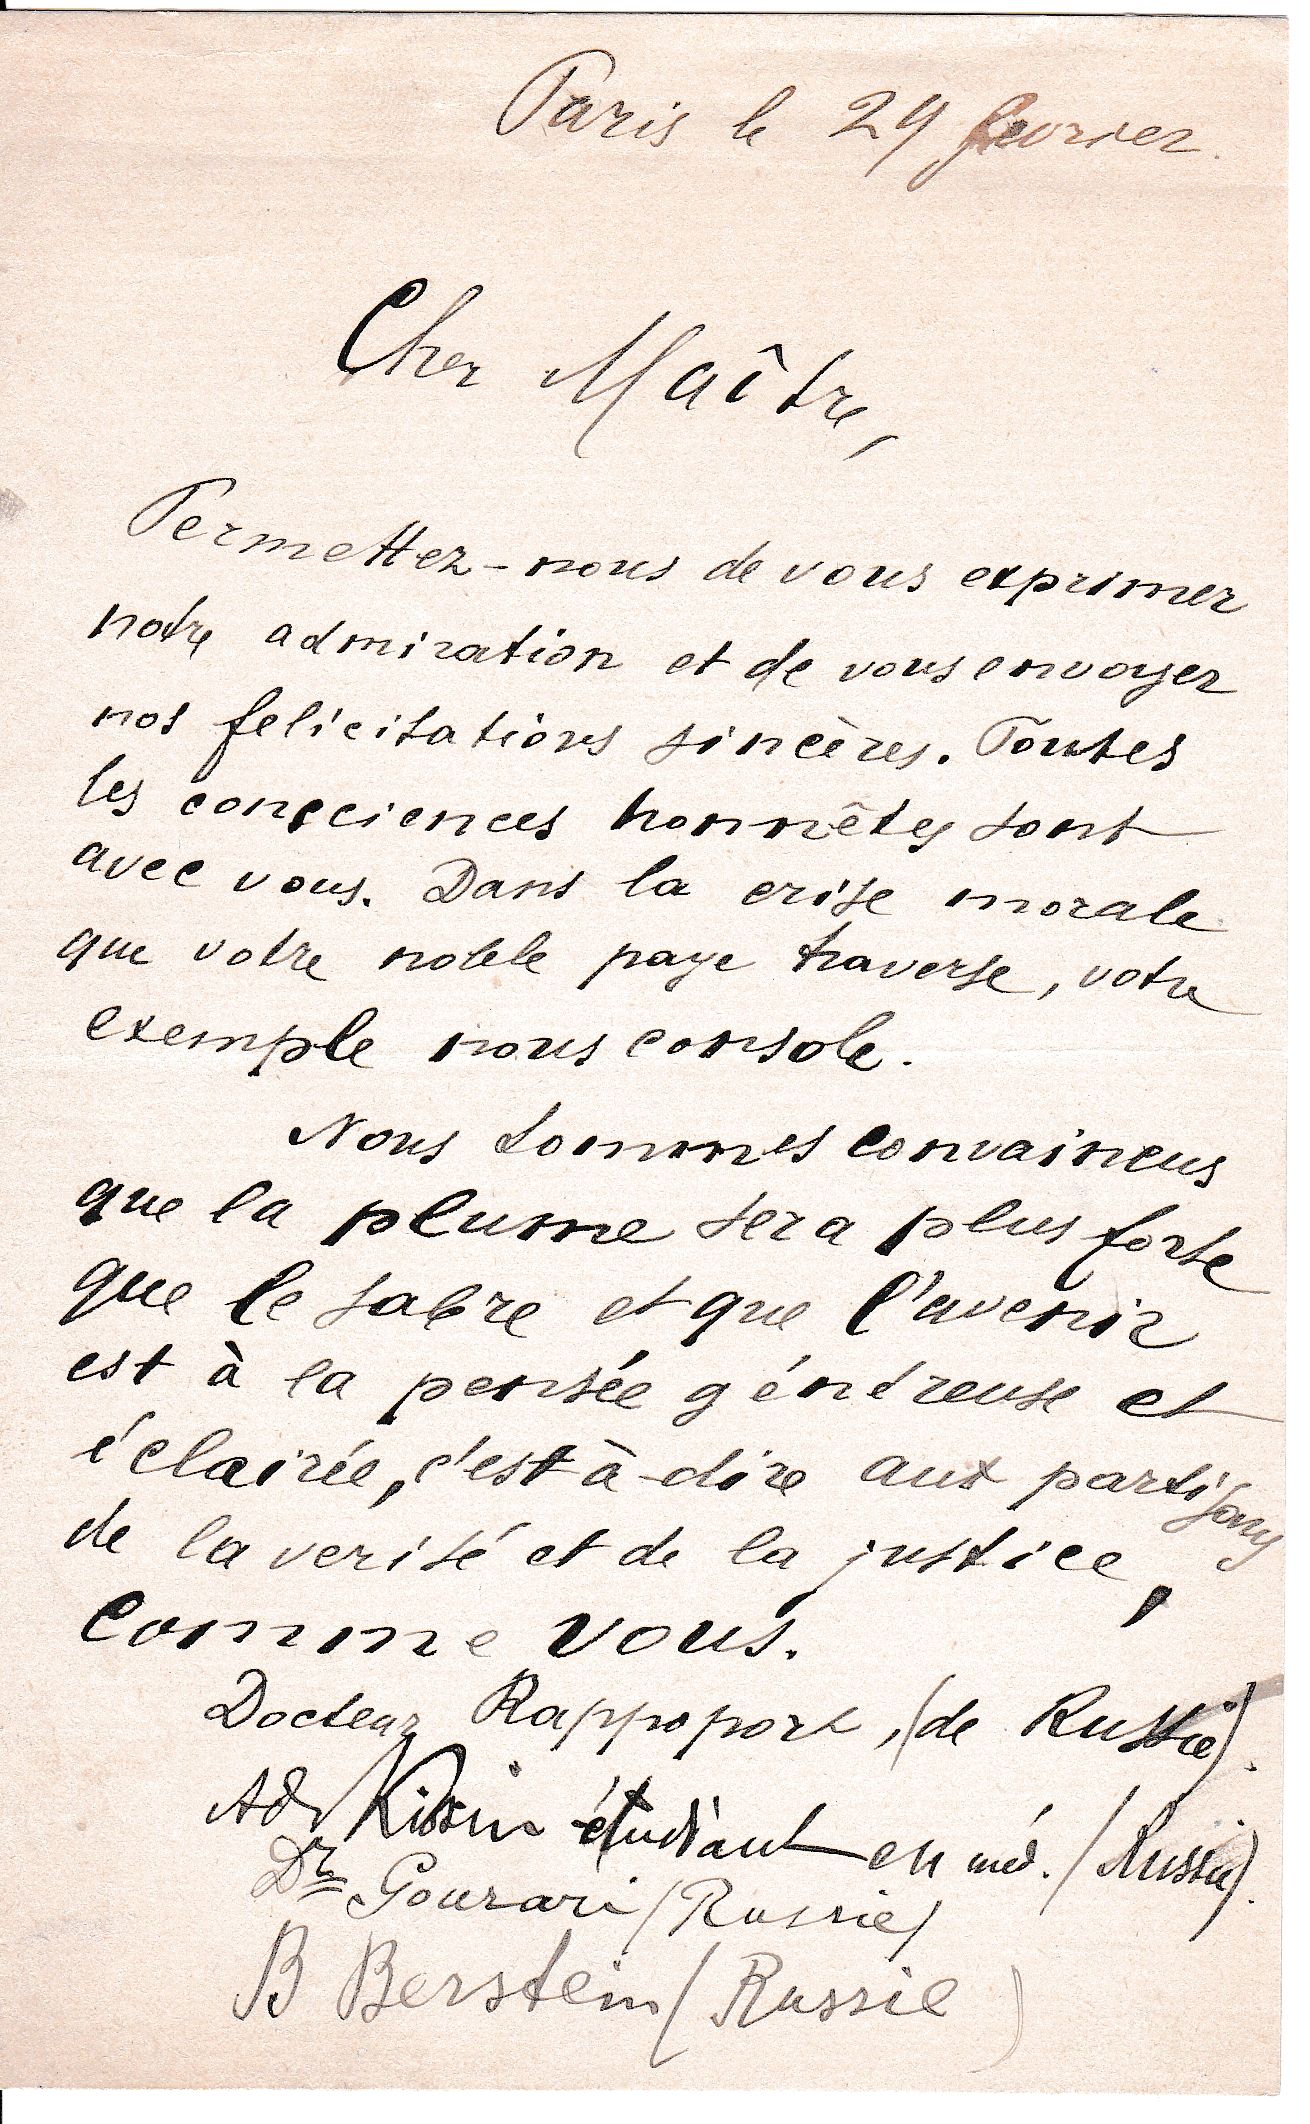 Paris le 24 fevrier.
Cher Maître,
Permettez-nous de vous exprimer
notre admiration et de vous envoyer
nos felicitations sincères. Toutes
les consciences honnêtes sont
avec vous. Dans la crise morale
que votre noble paye traverse, votre
exemple nous console.
Nous sommes convaincus
que la plume sera plus forte
que le sabre et que l'avenir
est à la pensée généreuse et
éclairée, c'est à-dire aux partisans
de la verité et de la justice,
comme vous.
Docteur Rappoport, (de Russie).
Ad. Kissin étudiant en méd. (Russie).
Dr Gourari (Russie)
B Berstein (Russie)